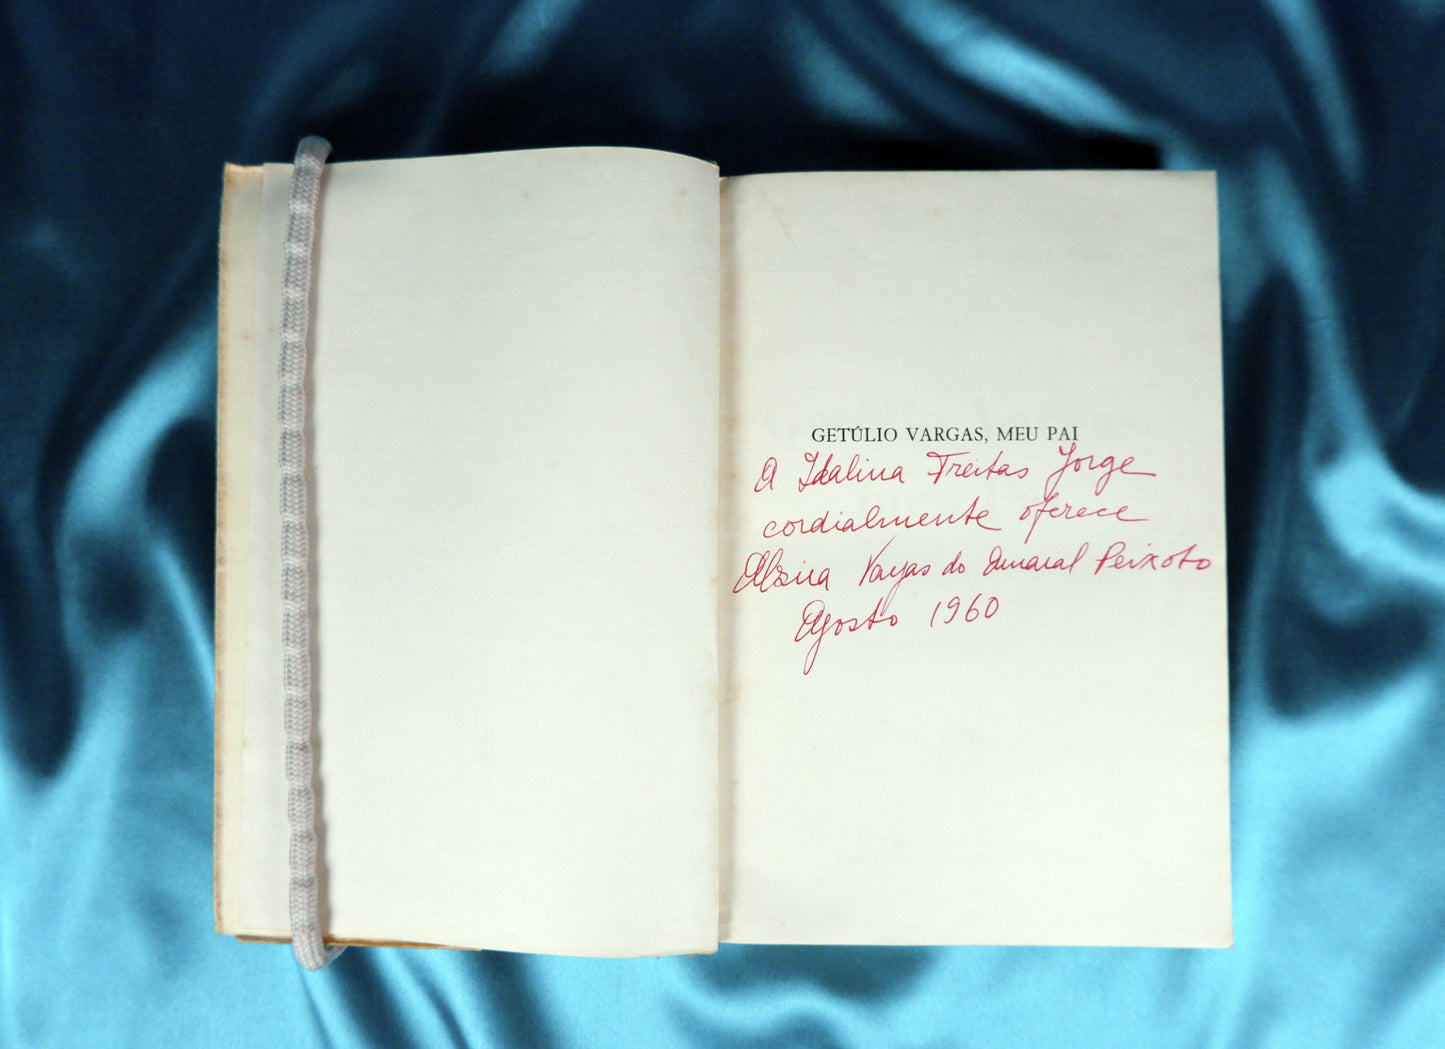 GETÚLIO VARGAS, MEU PAI
A Idalina Freitas Jorge
cordialmente oferece
Alzira Vargas do Amaral Peixoto
Agosto 1960